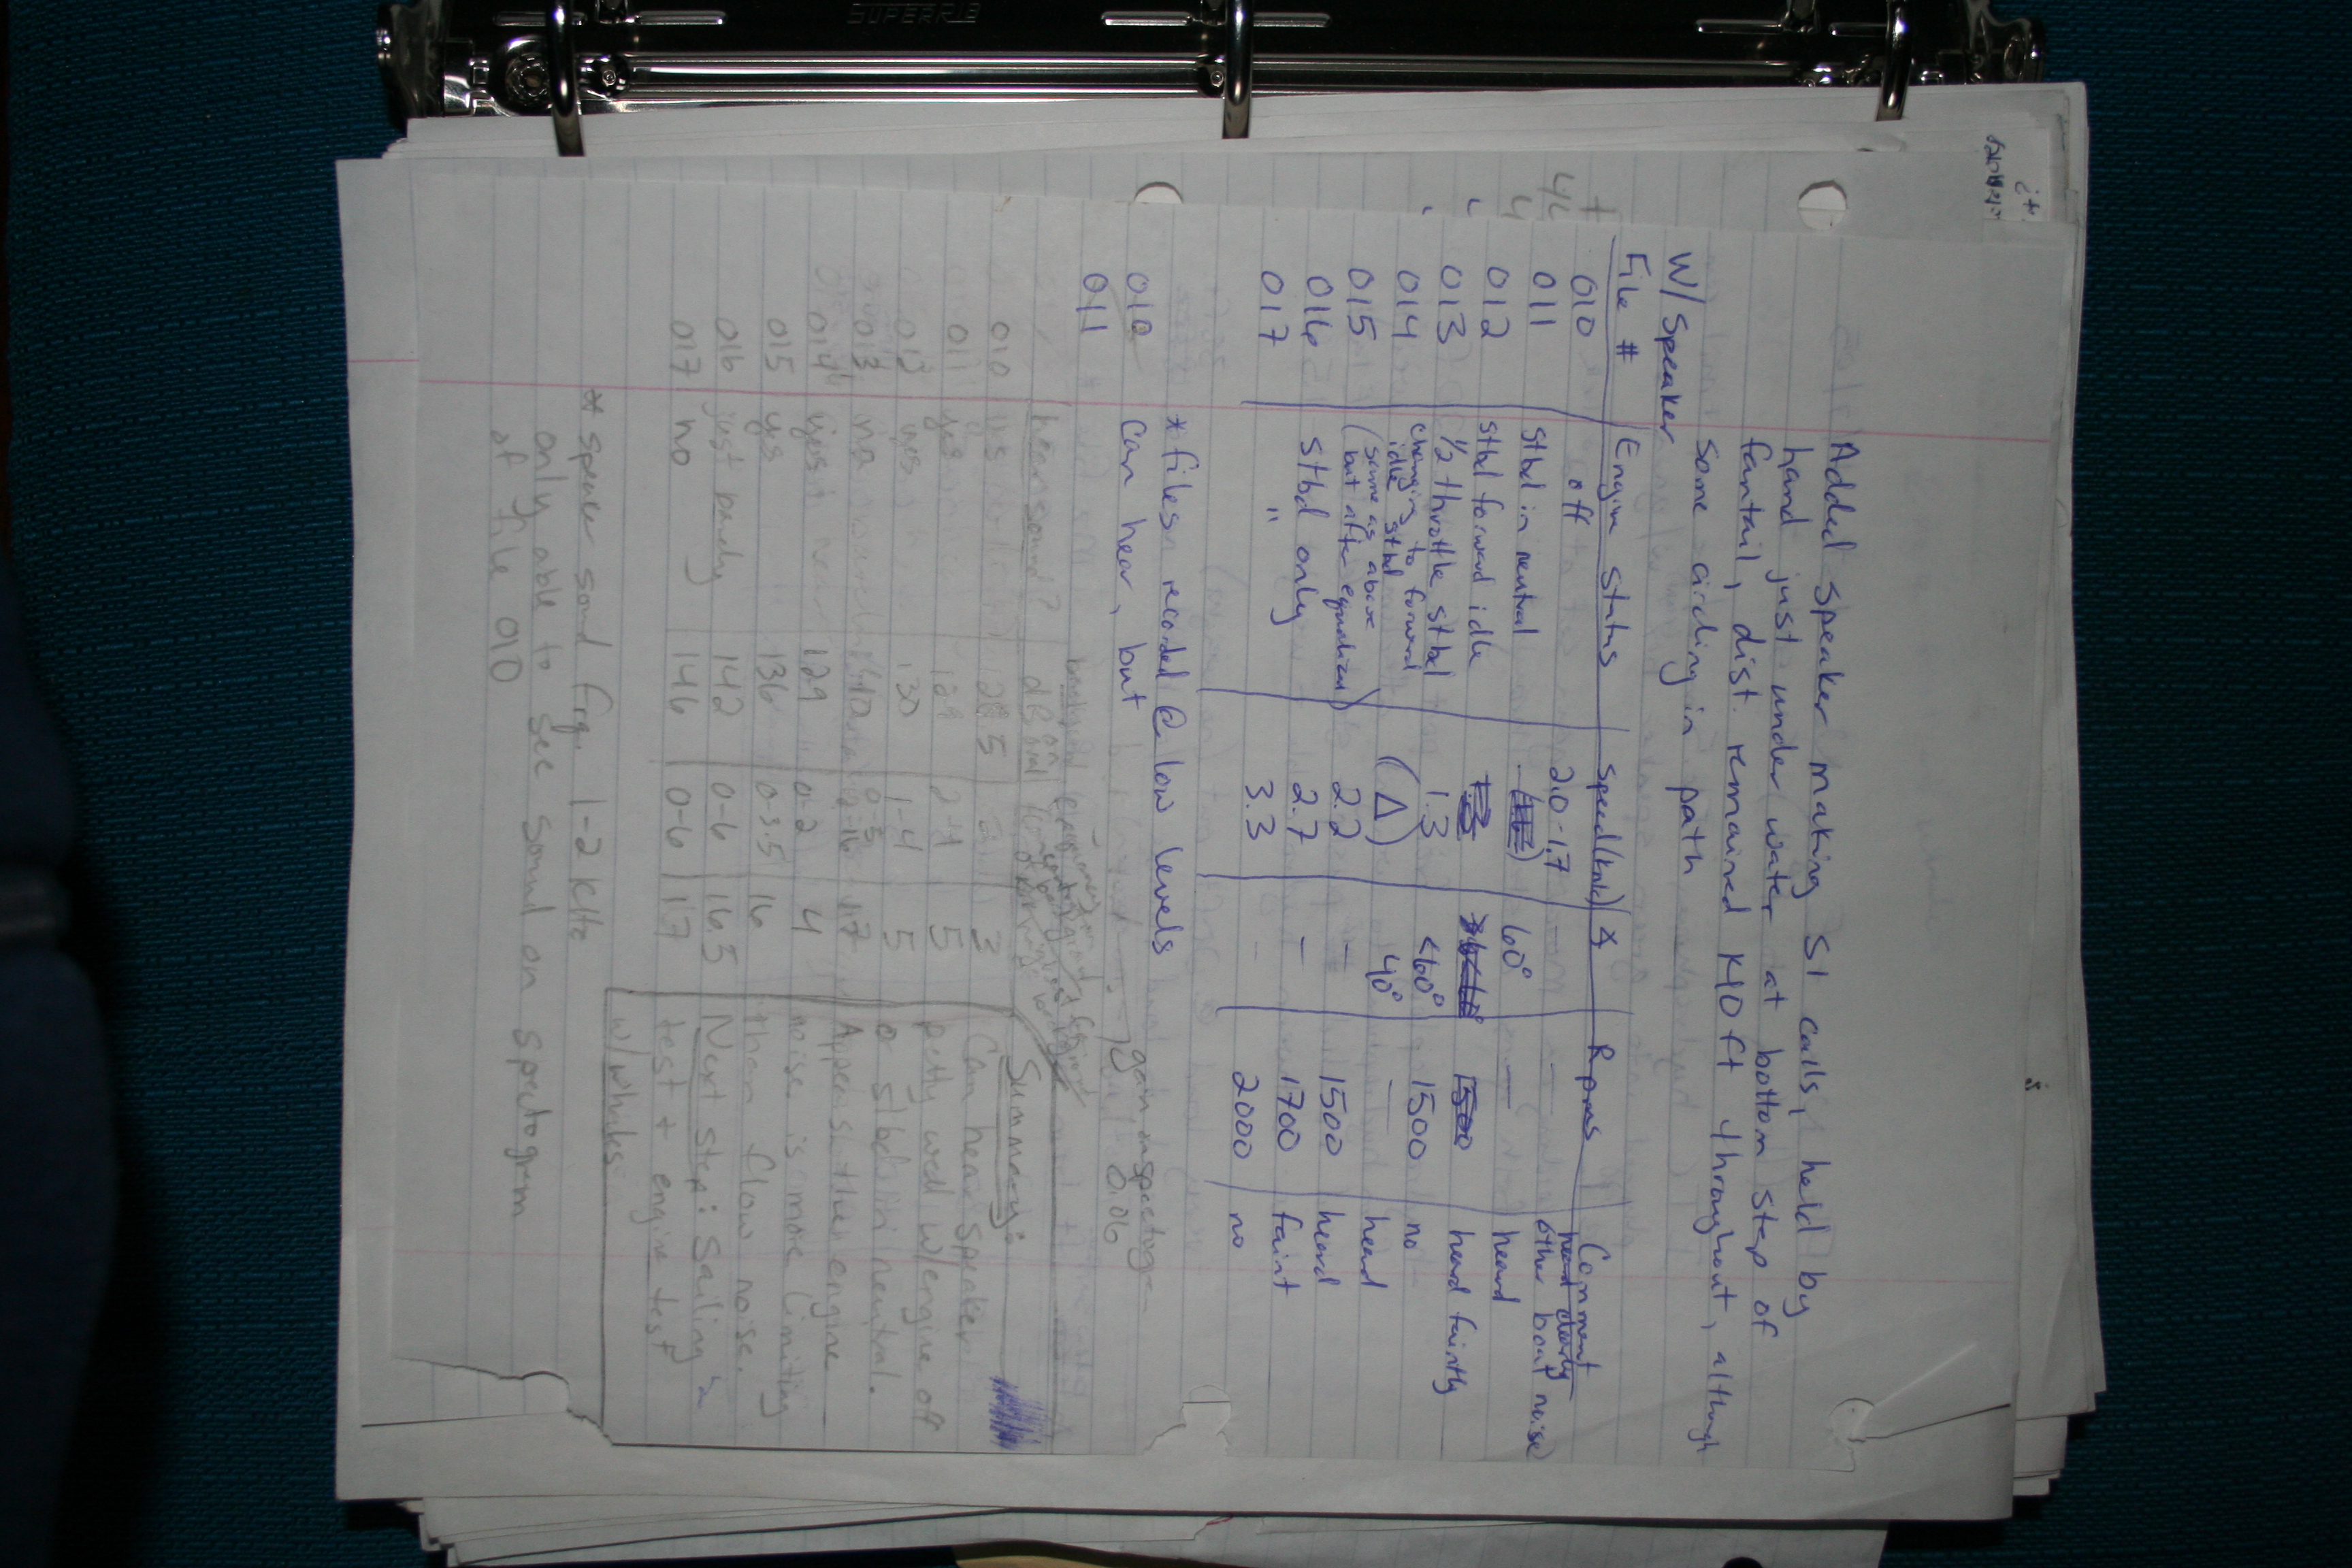 Added speaker making S1 calls, held by
hand just under water at bottom step of
fantail, dist. remained 140 ft throughout, although
some circling in path
W/ Speaker
File # Engine Status Speed (knts) ∡ Rpms Comment
010 off 2.0-1.7 — heard clearly
other boat noise)
011 stbd in neutral 60° — heard
012 stbd forward idle 1.3 1500 heard faintly
013 1/2 throttle stbd 1.3 <60° 1500 no
014 changing to forward idle stbd (Δ) 40° — heard
015 (same as above but after equalized) 2.2 - 1500 heard
016 stbd only 2.7 - 1700 faint
017 " 3.3 - 2000 no
* files recorded @ low levels
010 can hear, but
011
gain in spectogram
0.06
hear sound?
010 3
011 yes 2-4 5
012 yes 130 1-4 5
013 no 17
014 just 129 0-2 4
015 yes 136 0-3.5 16
016 just barely 142 0-6 16.5
017 no 146 0-6 17
Summary:
Can hear speaker
pretty well w/engine off
or stbd in neutral.
Appears that engine
noise is more limiting
than flow noise.
Next step: Sailing
test + engine test
w/ whales
* speaker sound frq. 1-2 kHz
only able to see sound on spectogram
of file 010
SUPERRIB